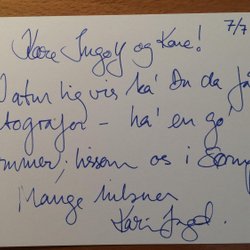 7/7
Kære Ingolf og Kane!
Naturligvis ka' Du da få
fotografor - ha' en go'
sommer, lissom os i
Mange hilsner
Karin Ingol.